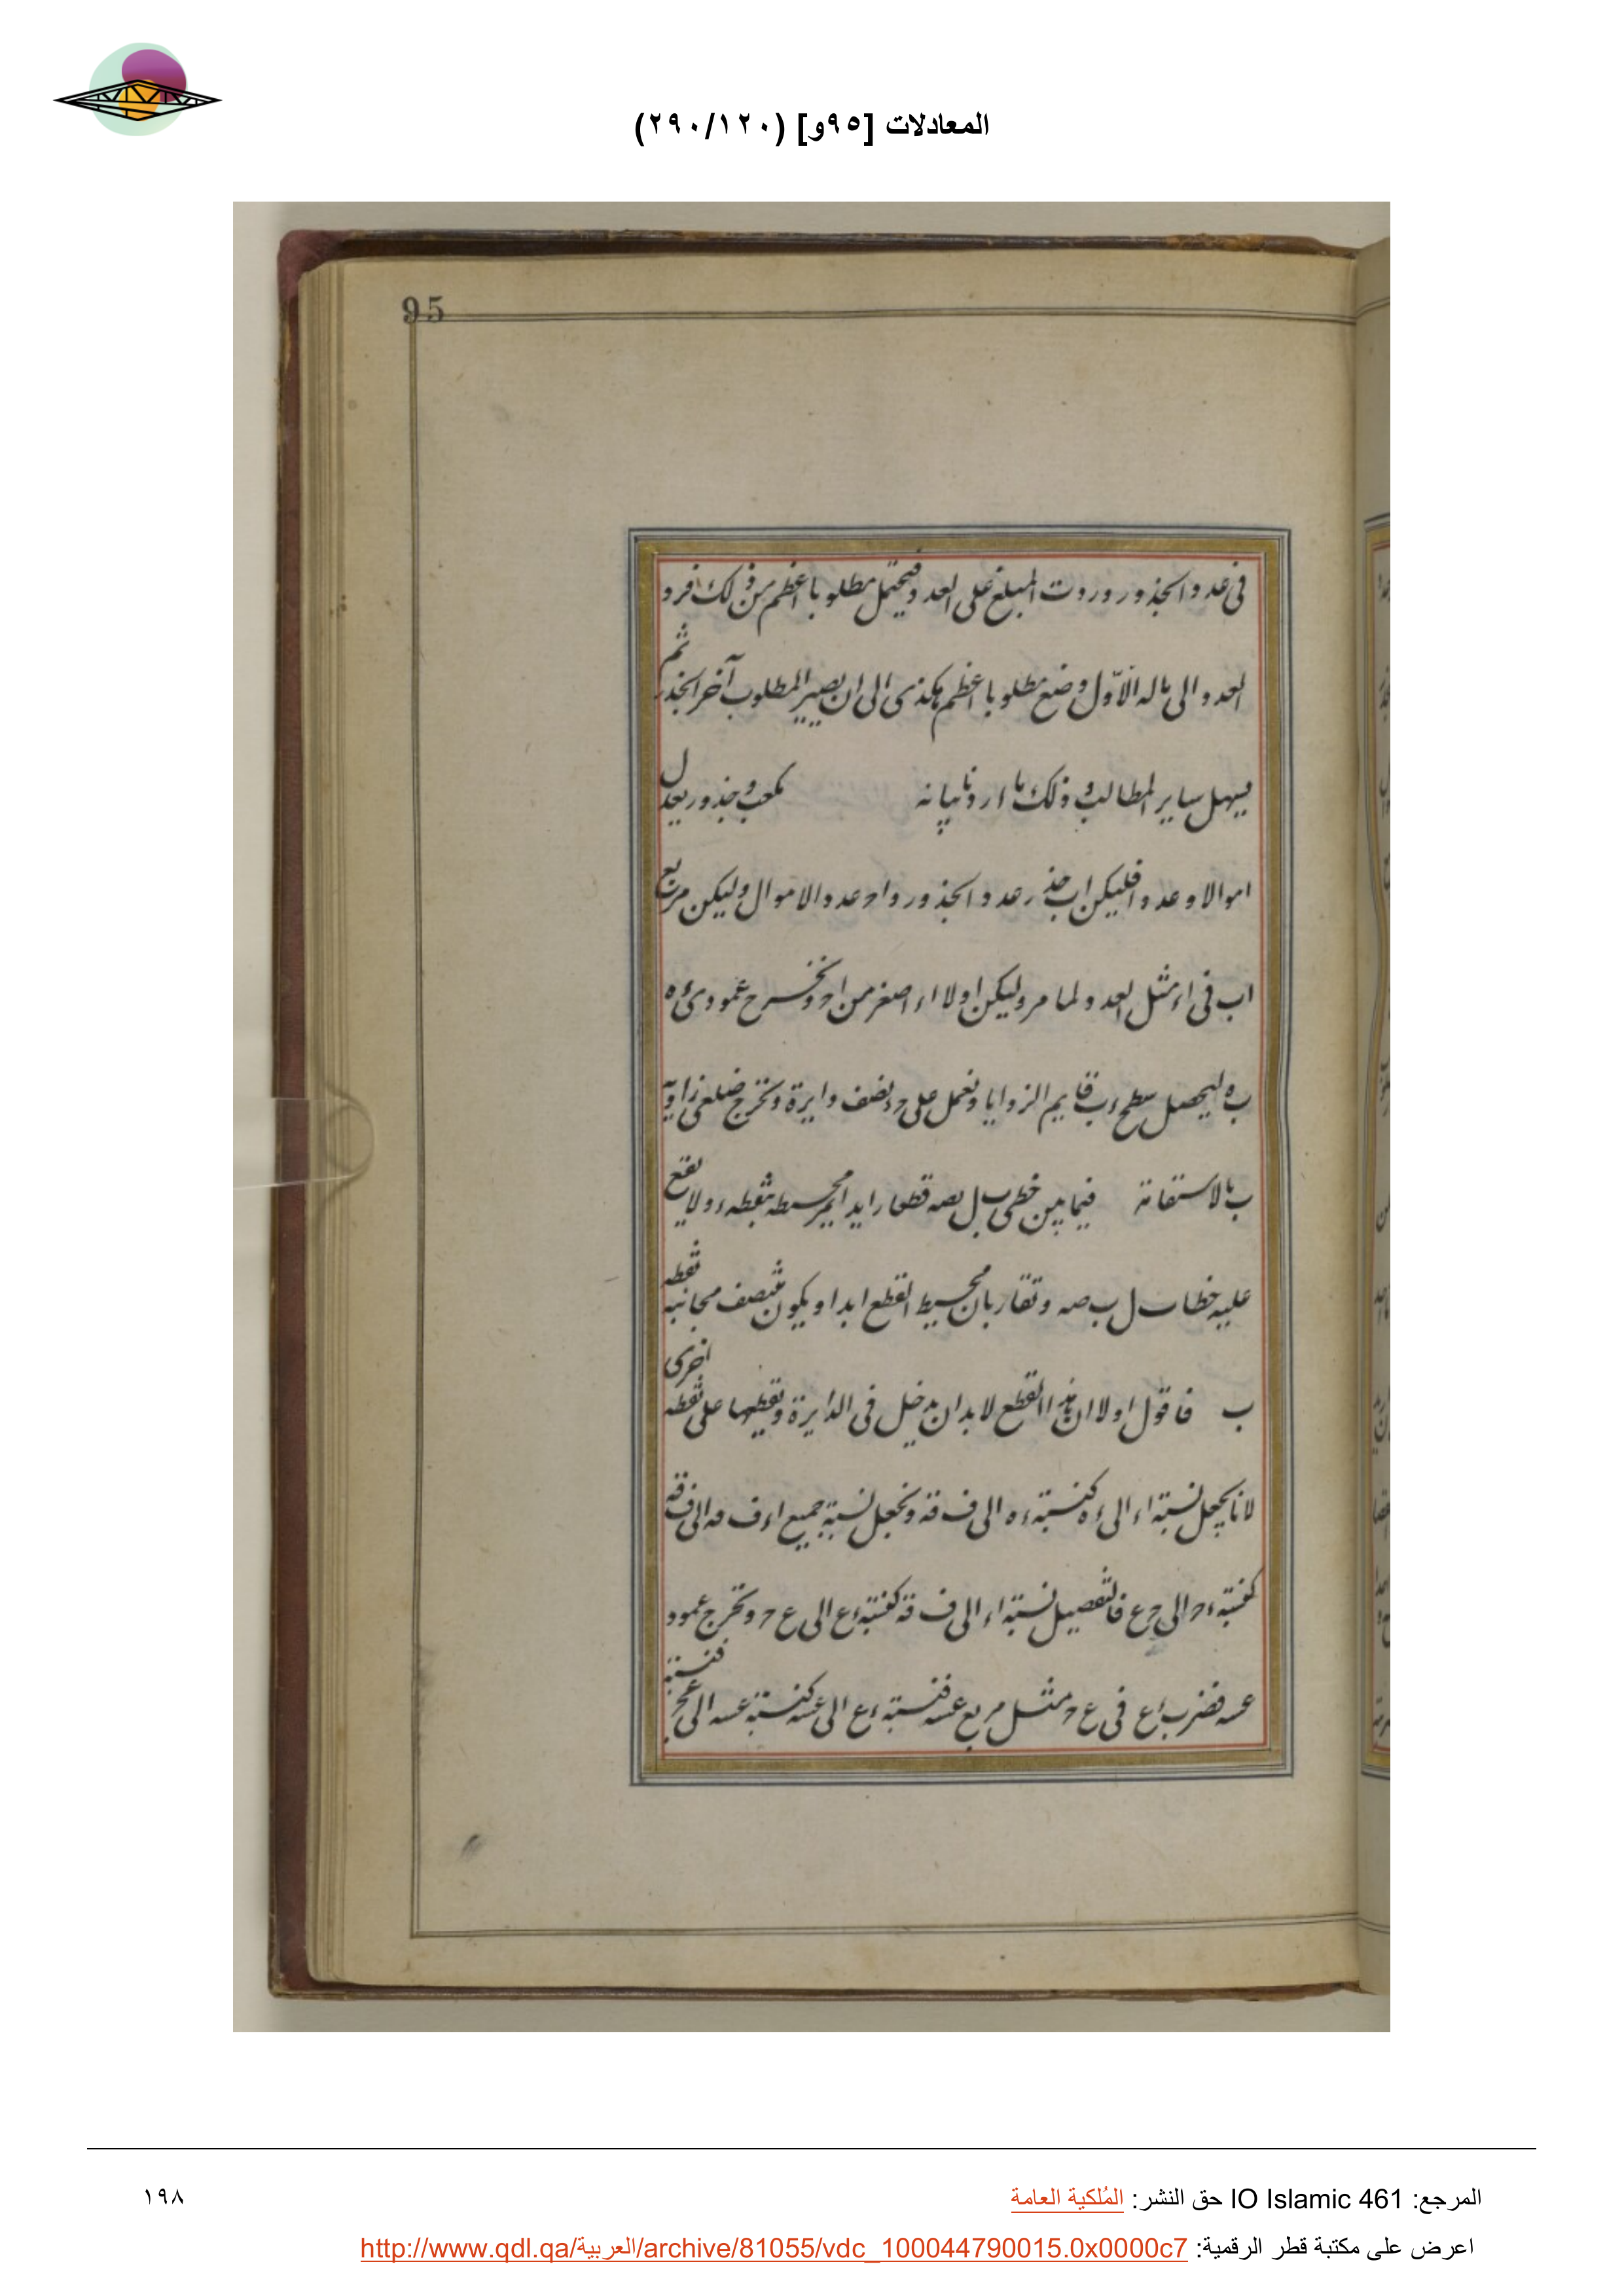 المعادلات [٩٥و] (٢٩٠/١٢٠)
95
فى عدد الجذور وردت المبلغ على العدد فيحتمل مطلوبا اعظم من ذلك فرد
العدد الى حاله الاوّل وضع مطلوبا اعظم هكذى الى ان يصير المطلوب آخر الجذر ثم
فيسهل ساير المطالب وذلك ما اردنا بيانه مكعب وجذور يعدل
اموالا وعددا فليكن اب جذر عدد الجذور و اح عدد الاموال وليكن مربع
اب فى اء مثل العدد ولما مر وليكن اولا اء اصغر من اح ونخرج عمودى ء ه
ب ه ليحصل سطح ء ب قايم الزوايا ونعمل على ء ح نصف دايرة ونخرج ضلعى زاوية
ب بالاستقامة فيما بين خطى ب ل ب صه قطعا زايدا يمر محيطه بنقطه ء ولا يقع
عليه خطا ب ل ب صه وتقاربان محيط القطع ابدا ويكون منتصف مجانبه نقطه
ب فاقول اولا ان هذا القطع لابد ان يدخل فى الدايرة ويقطعها على نقطه اخرى
لانا نجعل نسبة اء الى ء ه كنسبة ء ه الى ف قه ونجعل نسبة جميع اء ف قه الى ف قه
كنسبة ء ح الى ح ع فالتفصيل نسبة اء الى ف قه كنسبة ء ع الى ع ح ونخرج عمود
ع سه فضرب ء ع فى ع ح مثل مربع ع سه فنسبة ء ع الى ع سه كنسبة ع سه الى ع ح فنسبة
المرجع: IO Islamic 461 حق النشر: المُلكية العامة
١٩٨
اعرض على مكتبة قطر الرقمية: http://www.qdl.qa/العربية/archive/81055/vdc_100044790015.0x0000c7